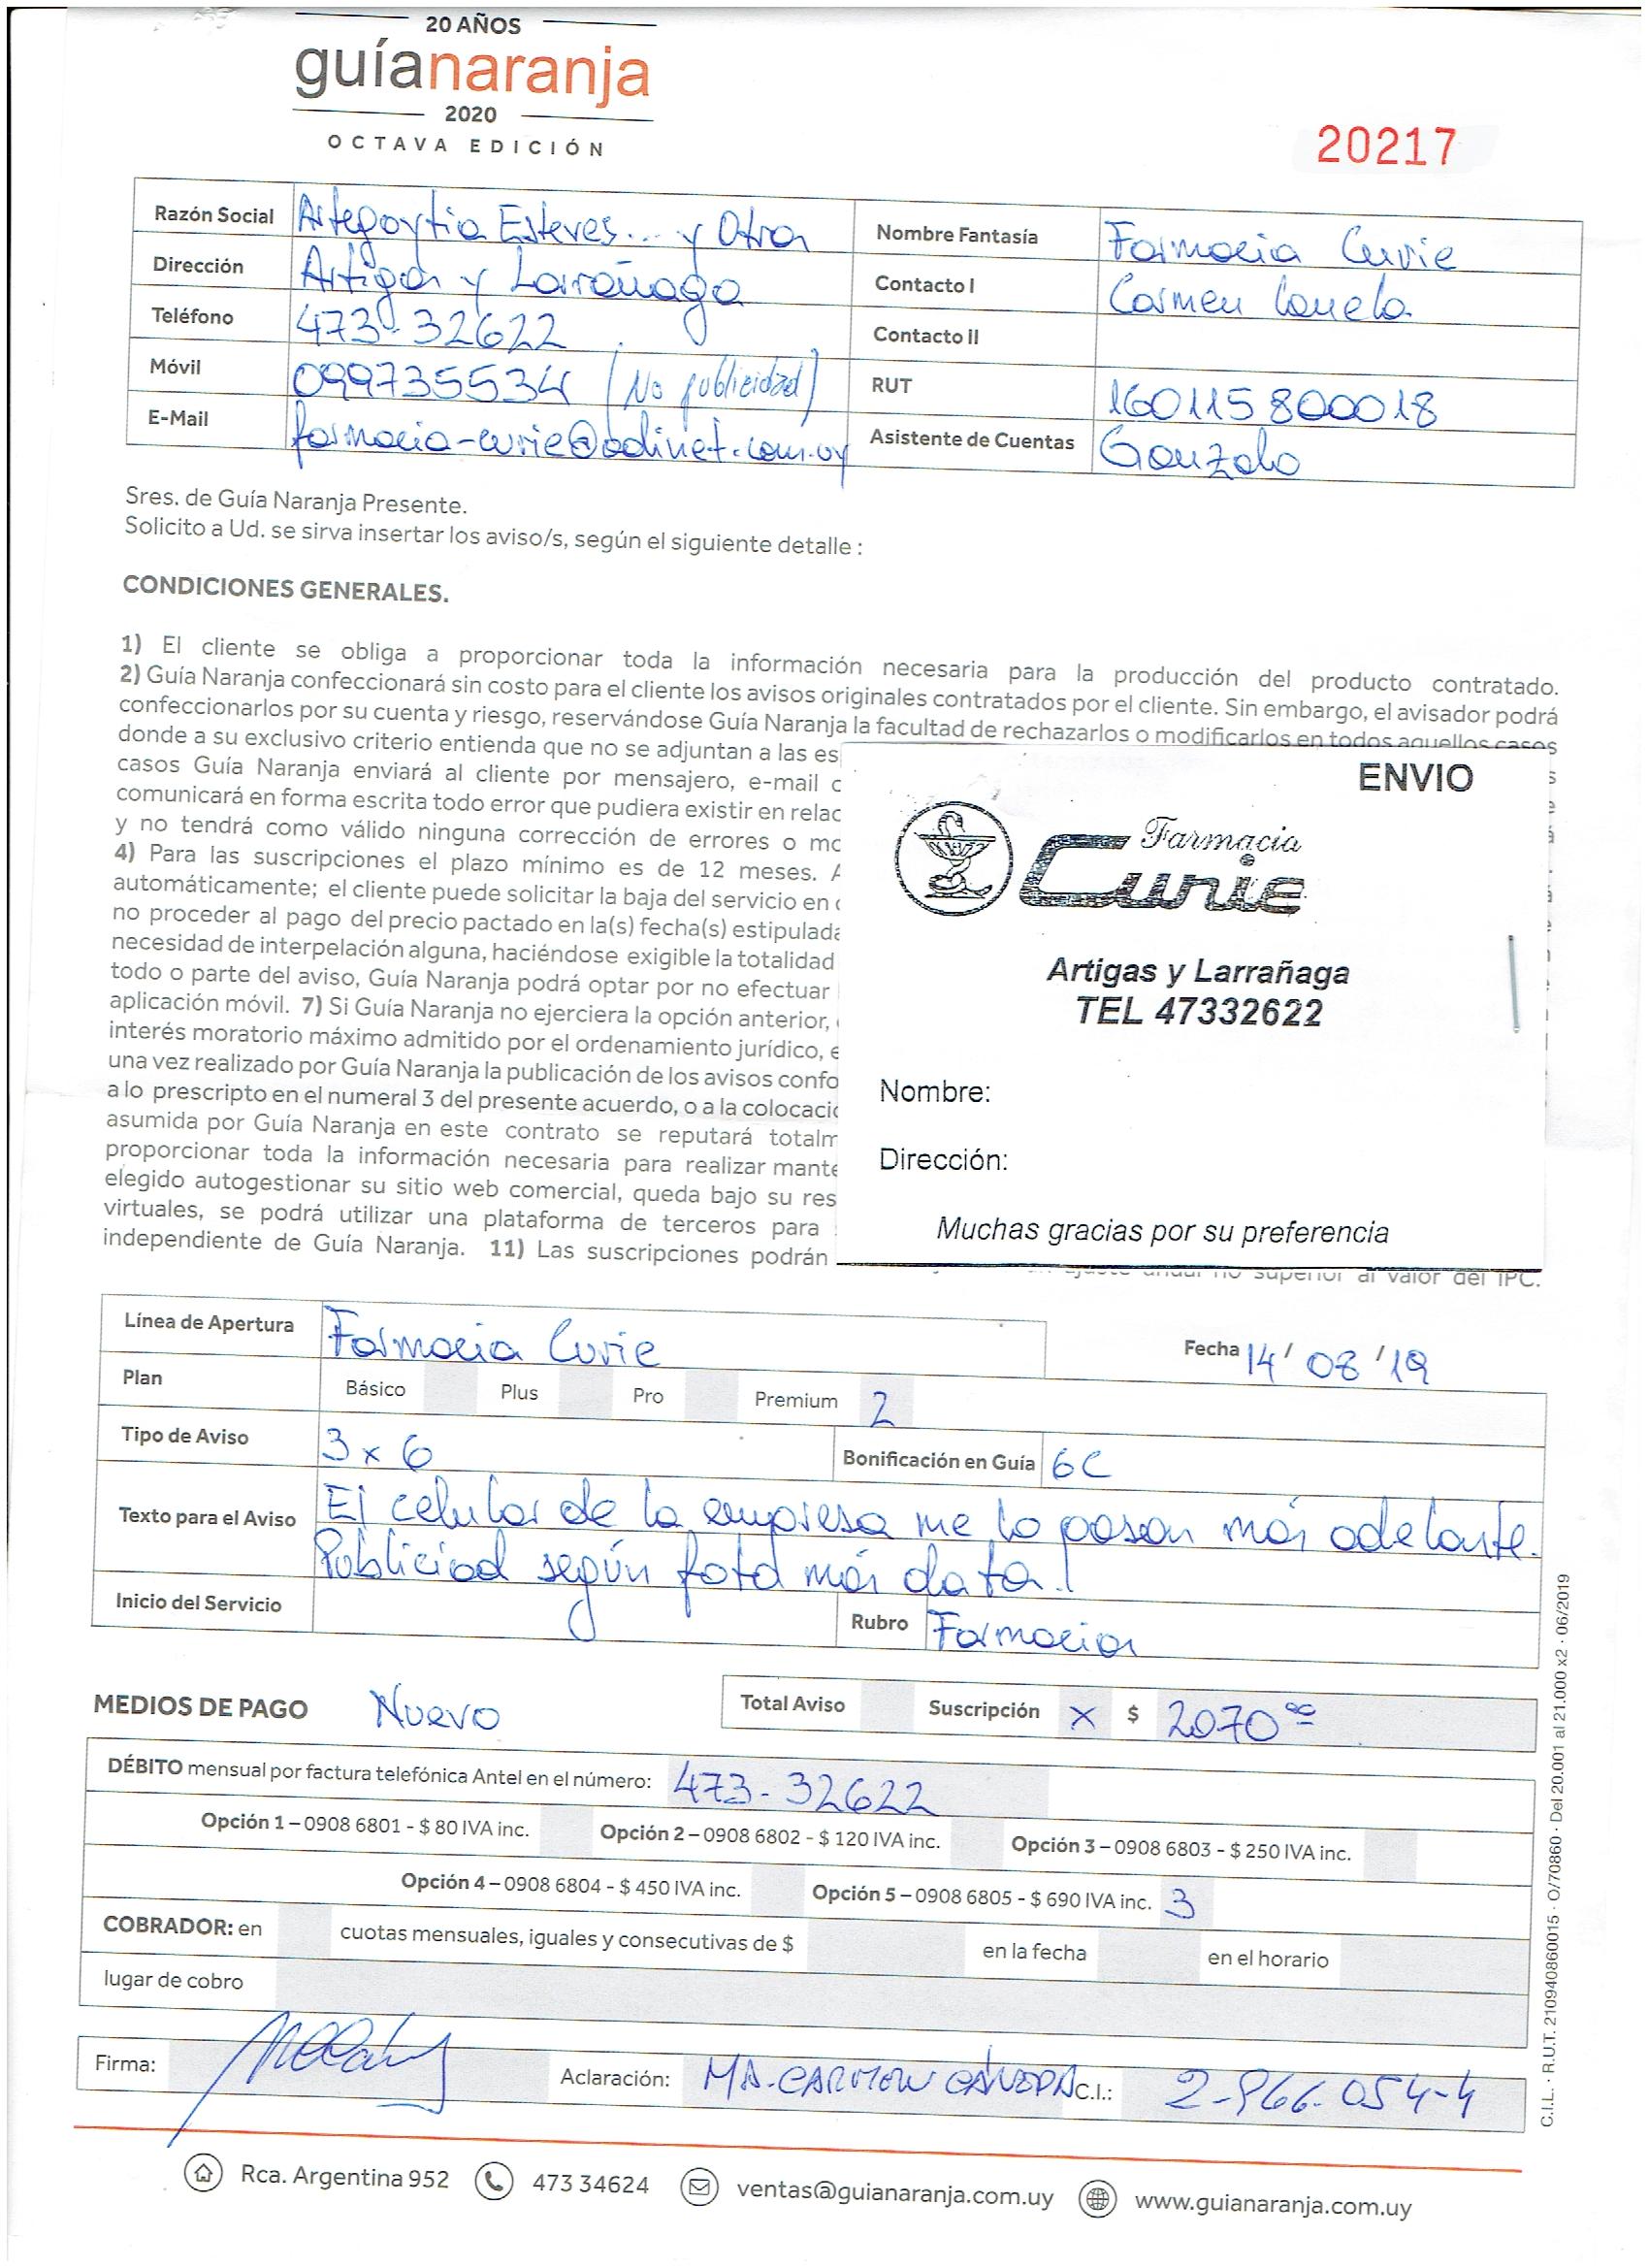 20 AÑOS
guíanaranja
2020
OCTAVA EDICIÓN
20217
Razón Social Artegoytia Esteves... y Otra
Nombre Fantasía Farmacia Curie
Dirección Artigas y Larrañaga
Contacto I Carmen
Teléfono 473-32622
Contacto II
Móvil 099735534 (No publicidad)
RUT 160115800018
E-Mail farmacia-curie@adinet.com.uy
Asistente de Cuentas Gonzalo
Sres. de Guía Naranja Presente.
Solicito a Ud. se sirva insertar los aviso/s, según el siguiente detalle :
CONDICIONES GENERALES.
1) El cliente se obliga a proporcionar toda la información necesaria para la producción del producto contratado.
2) Guía Naranja confeccionará sin costo para el cliente los avisos originales contratados por el cliente. Sin embargo, el avisador podrá
confeccionarlos por su cuenta y riesgo, reservándose Guía Naranja la facultad de rechazarlos o modificarlos en todos aquellos casos
donde a su exclusivo criterio entienda que no se adjuntan a las es
casos Guía Naranja enviará al cliente por mensajero, e-mail
comunicará en forma escrita todo error que pudiera existir en relac
y no tendrá como válido ninguna corrección de errores o mo
4) Para las suscripciones el plazo mínimo es de 12 meses. A
automáticamente; el cliente puede solicitar la baja del servicio en
no proceder al pago del precio pactado en la(s) fecha(s) estipulada
necesidad de interpelación alguna, haciéndose exigible la totalidad
todo o parte del aviso, Guía Naranja podrá optar por no efectuar
aplicación móvil. 7) Si Guía Naranja no ejerciera la opción anterior,
interés moratorio máximo admitido por el ordenamiento jurídico, e
una vez realizado por Guía Naranja la publicación de los avisos confo
a lo prescripto en el numeral 3 del presente acuerdo, o a la colocació
asumida por Guía Naranja en este contrato se reputará totalm
proporcionar toda la información necesaria para realizar mante
elegido autogestionar su sitio web comercial, queda bajo su res
virtuales, se podrá utilizar una plataforma de terceros para
independiente de Guía Naranja. 11) Las suscripciones podrán
ajuste anual no superior al valor del IPC.
ENVIO
Farmacia
Curie
Artigas y Larrañaga
TEL 47332622
Nombre:
Dirección:
Muchas gracias por su preferencia
Línea de Apertura Farmacia Curie
Fecha 14/08/19
Plan Básico Plus Pro Premium 2
Tipo de Aviso 3x6
Bonificación en Guía 6C
Texto para el Aviso El celular de la empresa me lo pasan más adelante.
Publiciad según foto más data!
Inicio del Servicio
Rubro Farmacias
MEDIOS DE PAGO Nuevo
Total Aviso Suscripción x $ 2070 00
DÉBITO mensual por factura telefónica Antel en el número: 473-32622
Opción 1 – 0908 6801 - $ 80 IVA inc. Opción 2 – 0908 6802 - $ 120 IVA inc. Opción 3 – 0908 6803 - $ 250 IVA inc.
Opción 4 – 0908 6804 - $ 450 IVA inc. Opción 5 – 0908 6805 - $ 690 IVA inc. 3
COBRADOR: en cuotas mensuales, iguales y consecutivas de $ en la fecha en el horario
lugar de cobro
Firma: Aclaración: MA. CARMEN CÁNEPA C.I.: 2-966.054-4
Rca. Argentina 952 473 34624 ventas@guianaranja.com.uy www.guianaranja.com.uy
C.I.L. · R.U.T. 210940860015 · O/70860 · Del 20.001 al 21.000 x2 · 06/2019